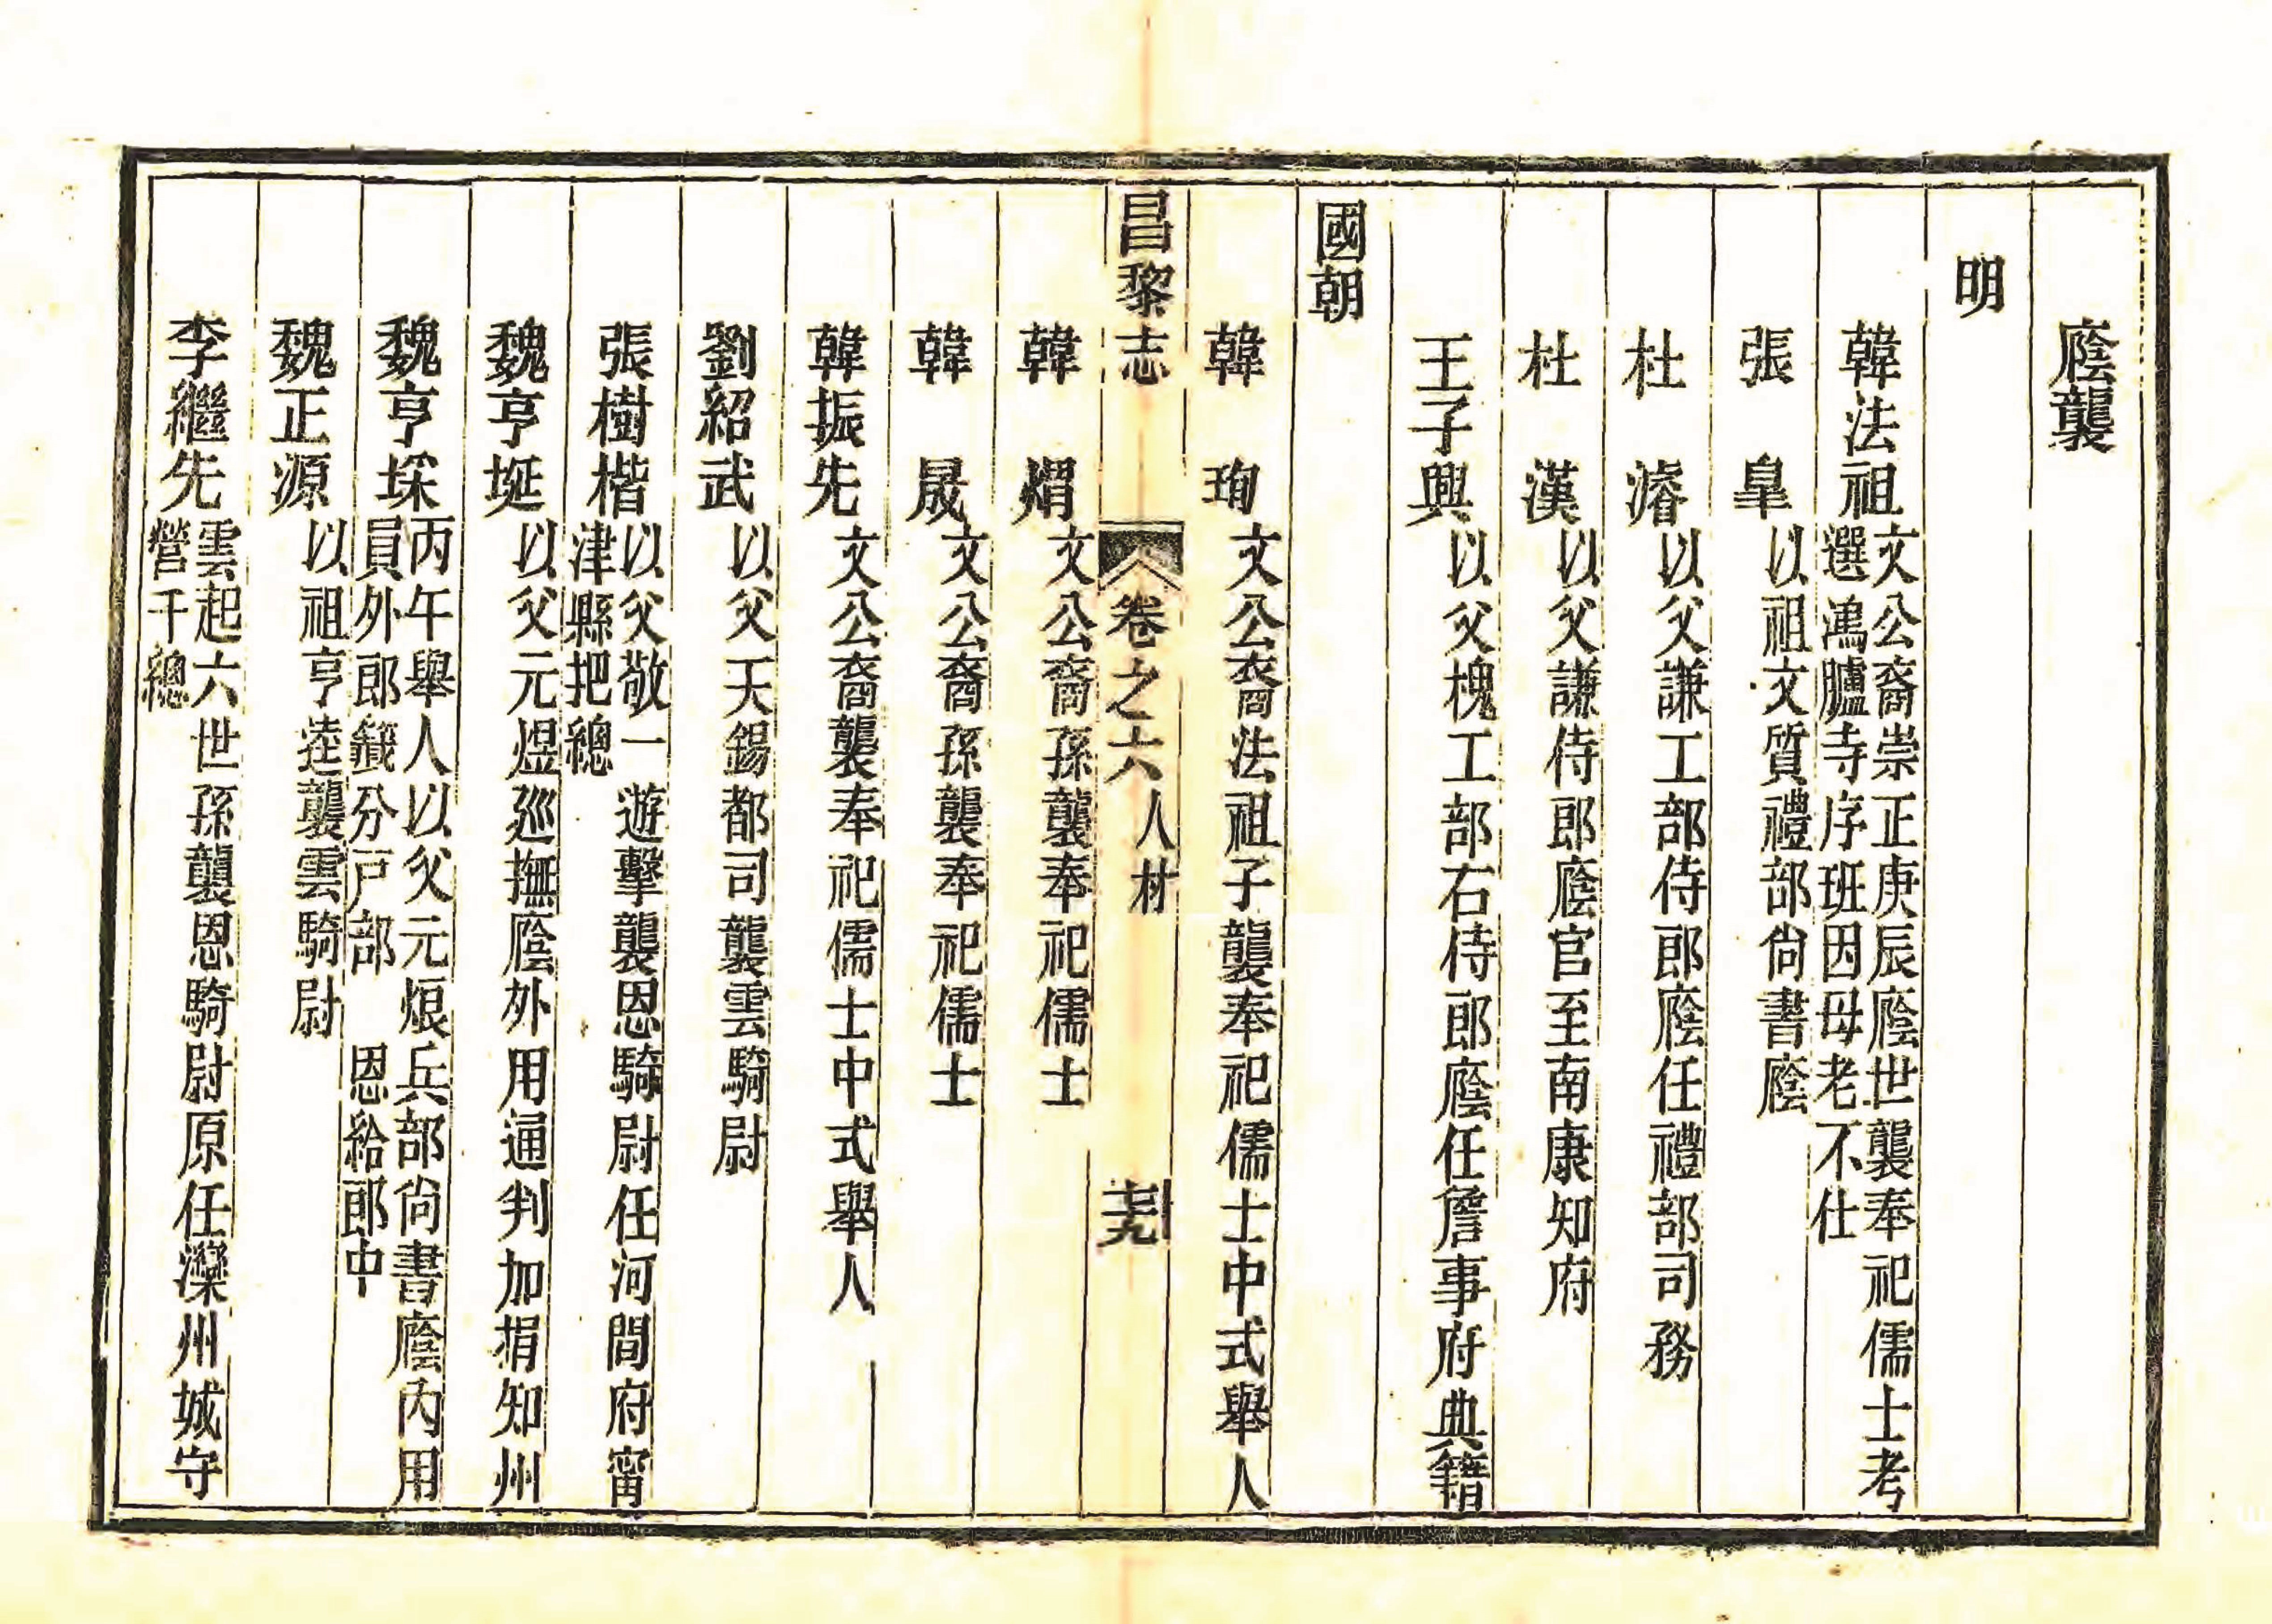 廕襲
明
韓法祖 文公裔崇正庚辰廕世襲奉祀儒士考
選鴻臚寺序班因母老不仕
張皐 以祖文質禮部尙書廕
杜濬 以父謙工部侍郎廕任禮部司務
杜漢 以父謙侍郎廕官至南康知府
王子興 以父槐工部右侍郎廕任詹事府典籍
國朝
韓珣 文公裔法祖子襲奉祀儒士中式舉人
昌黎志 卷之六 人材
韓焆 文公裔孫襲奉祀儒士
韓晟 文公裔孫襲奉祀儒士
韓振先 文公裔襲奉祀儒士中式舉人
劉紹武 以父天錫都司襲雲騎尉
張樹楷 以父敬一遊擊襲恩騎尉任河間府甯
津縣把總
魏亨埏 以父元煜巡撫廕外用通判加捐知州
魏亨埰 丙午舉人以父元烺兵部尙書廕內用
員外郎籤分戸部 恩給郎中
魏正源 以祖亨逵襲雲騎尉
李繼先 雲起六世孫襲恩騎尉原任灤州城守
營千總